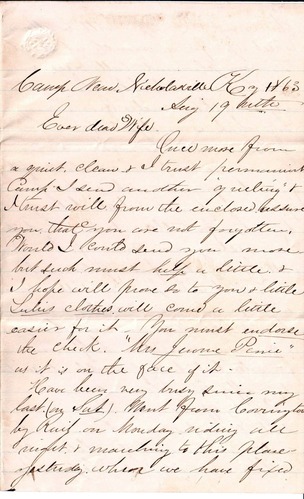 Camp Near Nicholasville Ky 1863
Aug 19th
Ever dear Wife.
Once more from
a quiet, clean & I trust permanent
Camp I send another greeting &
trust will from the enclosed assure
you, that you are not forgotten,
Would I could send you more
but such must help a little &
I hope will prove so to you & little
clothes, will come a little
easier for it. You must endorse
the check. "Mrs Jerome
as it is on the face of it.
Have been very busy since my
last (on Sat). Went from Covington
by Rail on Monday riding all
night & marching to this place
yesterday where we have fixed